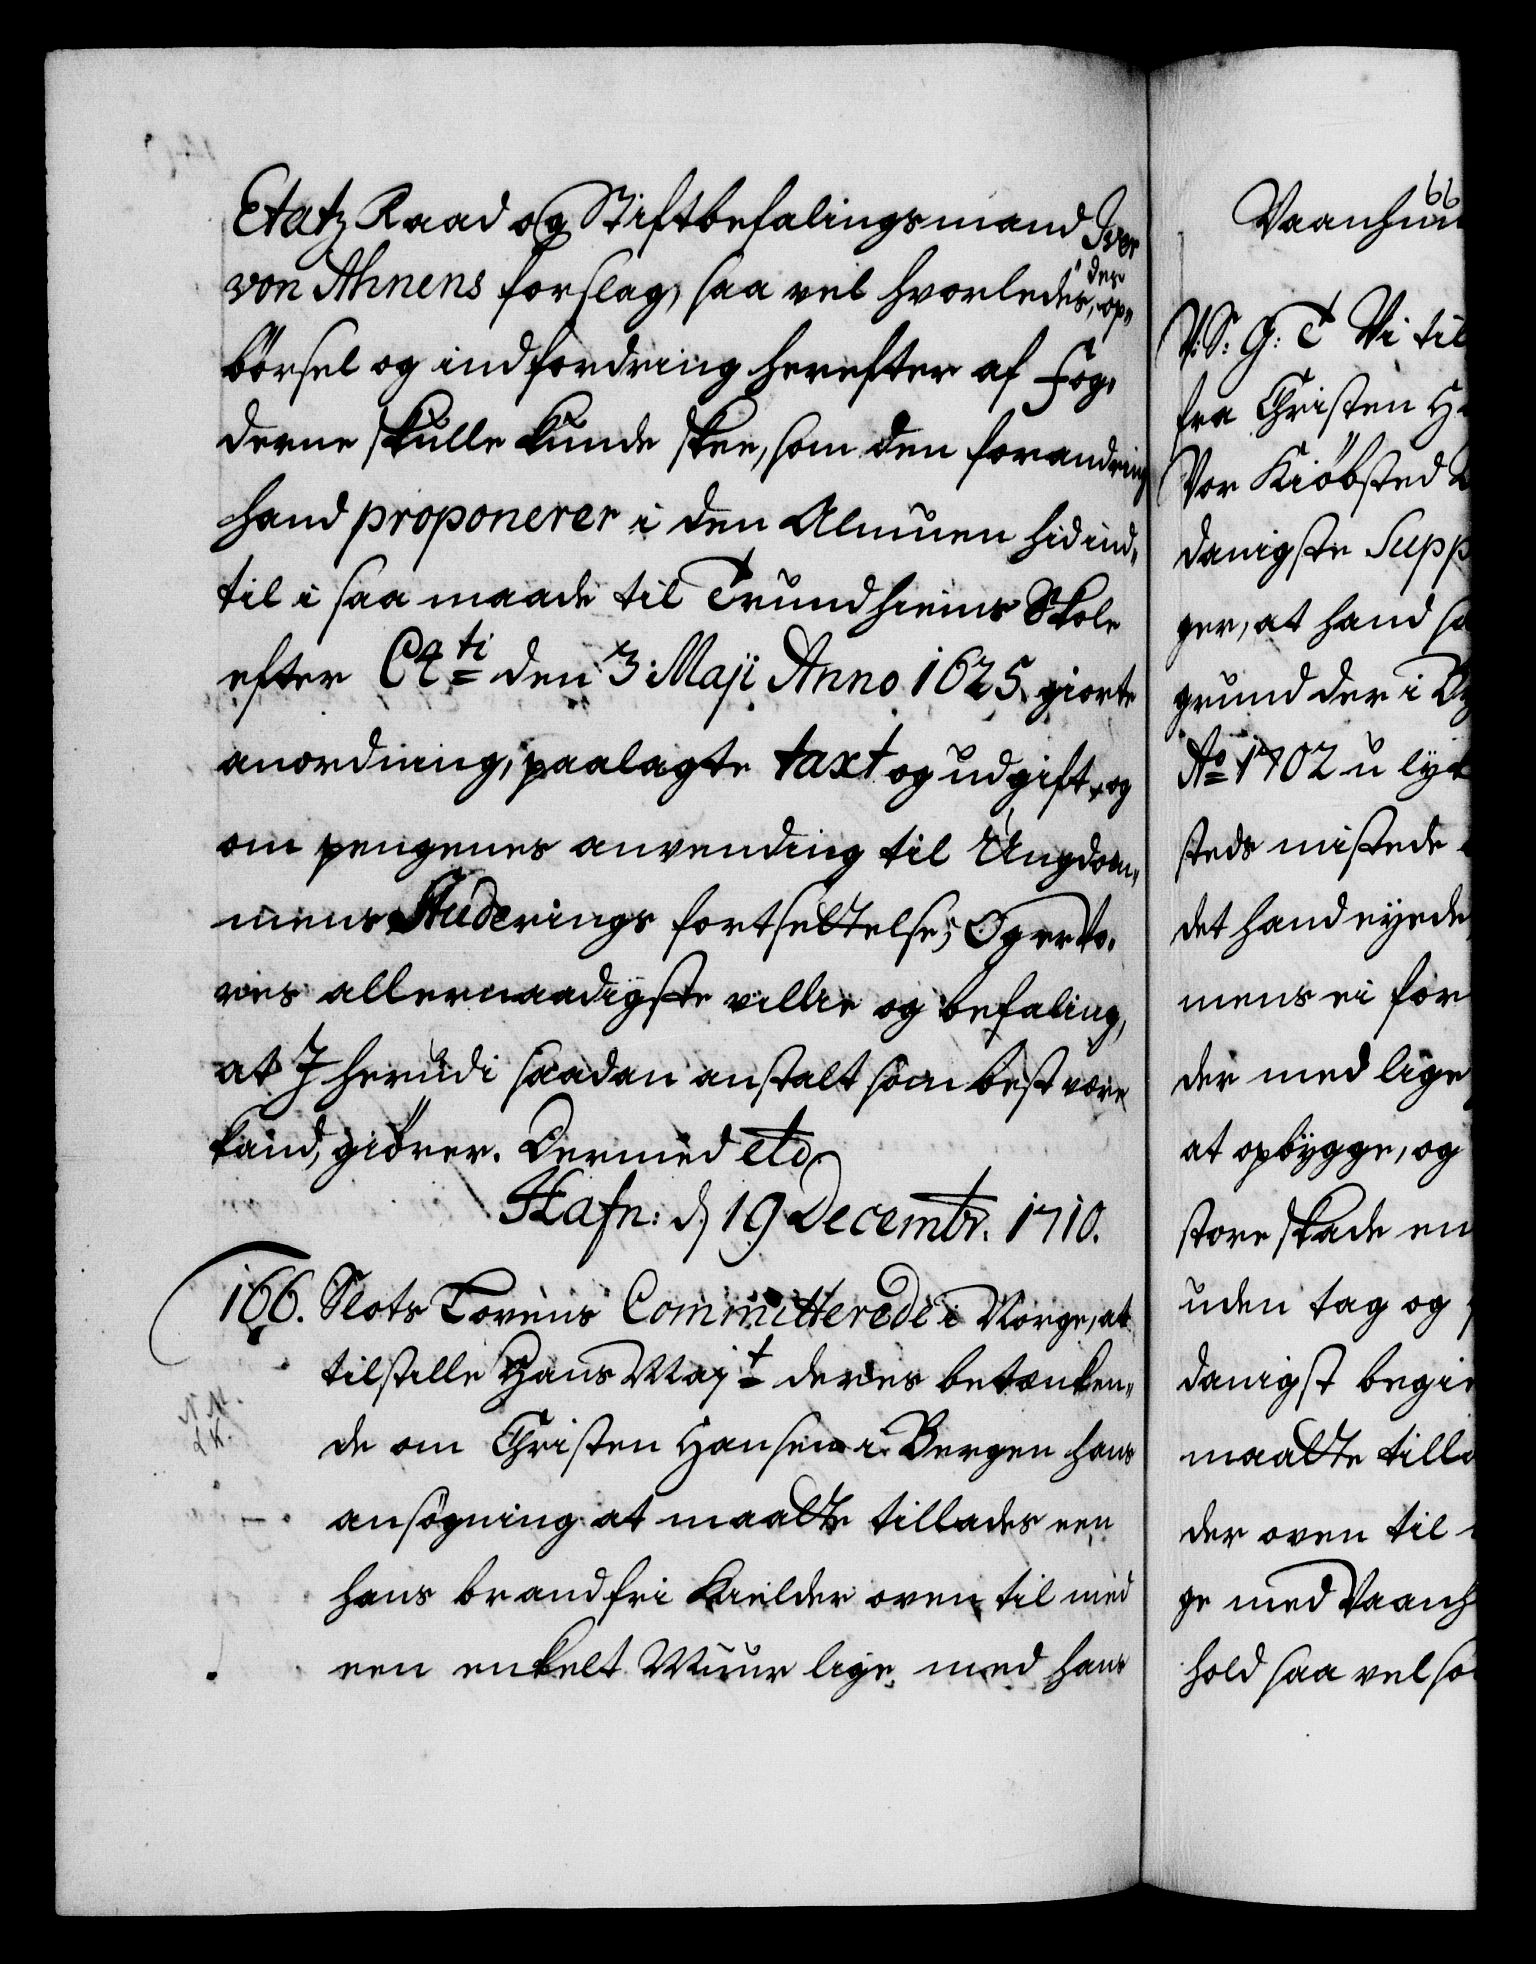 Etatz Raad og Stiftbefalingsmand Iver
von Ahnens forslag, saa vel hvorledes, der op-
börsel og indfordring herefter af Fog-
derne skulle kunde skee, som den forandring
hand proponerer i den Almuen hidind-
til i saa maade til Trundhiems Skole
efter C4ti den 3 Maji Anno 1625 giorte
anordning, paalagte taxt og udgift, og
om pengenes anvending til Ungdom-
mens Studerings fortsettelse; Og er Vo-
res allernaadigste villie og befaling,
at I herudi saadan anstalt som best være
kand, giörer. Dermed etc
Hafn: d. 19 Decembr. 1710.
166. Slots Lovens Committerede i Norge, at
tilstille Hans Majt deres betænken-
de om Christen Hansen i Bergen hans
N.
ansøgning at maatte tillades een
hans brandfri Kielder oven til med
een enkelt Muur lige med hans
Vaanhuu
V. S. G. T Vi til
fra Christen H
Vor Kiöbsted
danigste Supp
ger, at hand
grund der i By
Ao 1702 u lyk
steds mistede
det hand eyede
mens ei for
der med lige
at opbygge, og
store skade en
uden tag og
danigst begie
maatte tilla
der oven til
ge med Vaanh
hold saa vel so